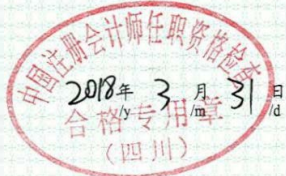 中国注册会计师任职资格检查
2018年 3月 31日
/y /m /d
合格专用章
(四川)